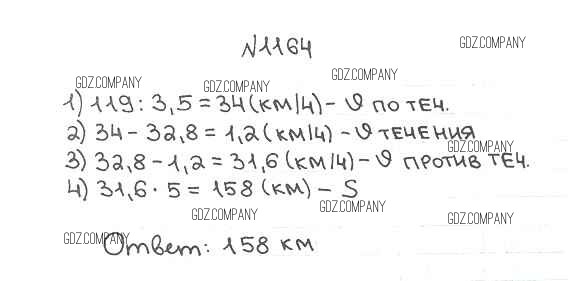 №1164
GDZ.COMPANY
GDZ.COMPANY
GDZ.COMPANY
GDZ.COMPANY
1) 119 : 3,5 = 34 (км/ч) – υ по теч.
2) 34 – 32,8 = 1,2 (км/ч) – υ течения
GDZ.COMPANY
3) 32,8 – 1,2 = 31,6 (км/ч) – υ против теч.
4) 31,6 · 5 = 158 (км) – S
GDZ.COMPANY
GDZ.COMPANY
GDZ.COMPANY
GDZ.COMPANY
Ответ: 158 км